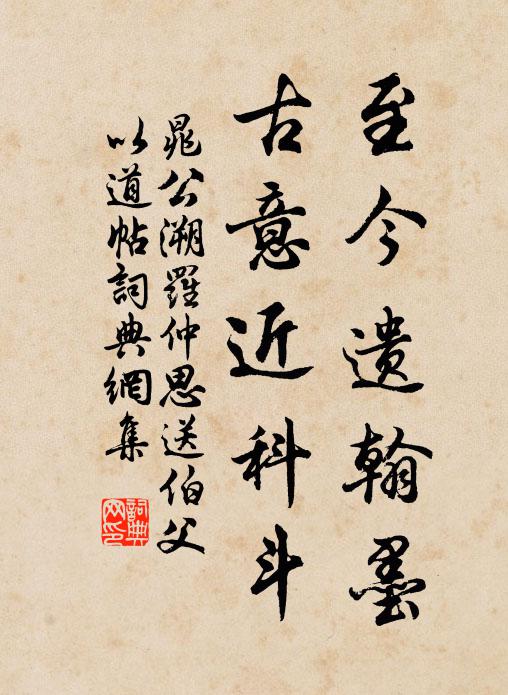 至今遺翰墨
古意近科斗
晁公溯羅仲思送伯父
以道帖詞典網集
詞典网印